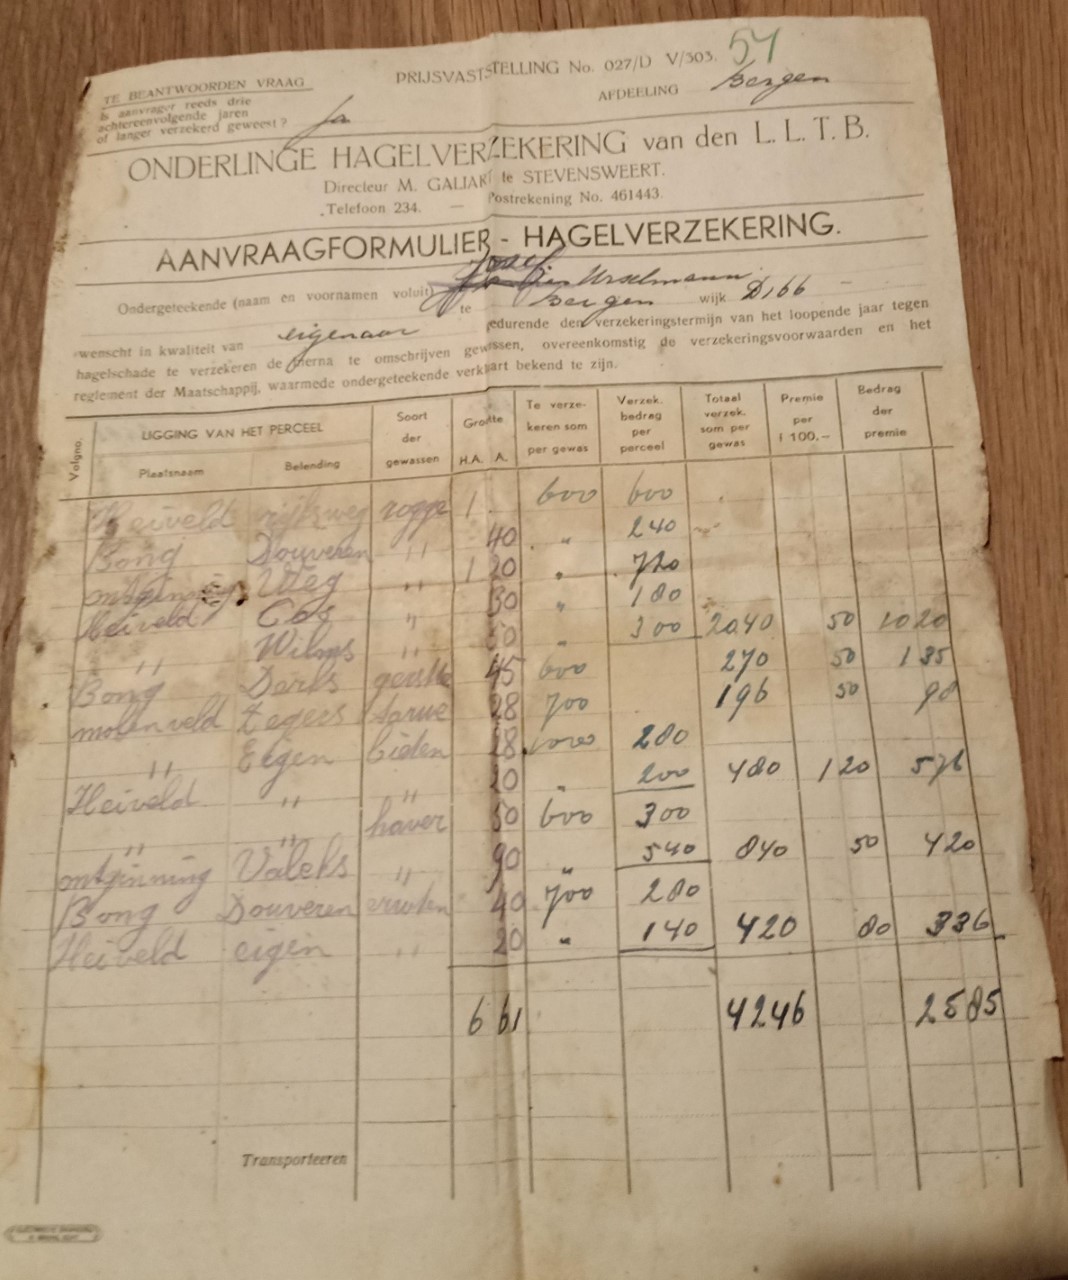 PRIJSVASTSTELLING No. 027/D V/303. 54
TE BEANTWOORDEN VRAAG
Is aanvrager reeds drie
achtereenvolgende jaren
of langer verzekerd geweest? Ja
AFDEELING Bergen
ONDERLINGE HAGELVERZEKERING van den L. L. T. B.
Directeur M. GALJAR te STEVENSWEERT.
Telefoon 234. — Postrekening No. 461443.
AANVRAAGFORMULIER - HAGELVERZEKERING.
Ondergeteekende (naam en voornamen voluit) Josef Urselmann
te Bergen wijk D166
wenscht in kwaliteit van eigenaar gedurende den verzekeringstermijn van het loopende jaar tegen
hagelschade te verzekeren de hierna te omschrijven gewassen, overeenkomstig de verzekeringsvoorwaarden en het
reglement der Maatschappij, waarmede ondergeteekende verklaart bekend te zijn.
Volgno. LIGGING VAN HET PERCEEL Plaatsnaam Belending Soort der gewassen Grootte H.A. A. Te verzekeren som per gewas Verzek. bedrag per perceel Totaal verzek. som per gewas Premie per f 100.— Bedrag der premie
Heiveld rijksweg rogge 1 600 600
Bong Douveren " 40 " 240
ontginning Weg " 1 20 " 720
Heiveld Cos " 30 " 180
" Wilms " 50 " 300 2040 50 1020
Bong Derks gerste 45 600 270 50 135
molenveld Zegers tarwe 28 700 196 50 98
" Eigen bieten 28 1000 280
Heiveld " " 20 " 200 480 120 576
" " haver 50 600 300
ontginning Valcks " 90 " 540 840 50 420
Bong Douveren erwten 40 700 280
Heiveld eigen " 20 " 140 420 80 336
6 61 4246 2585
Transporteeren